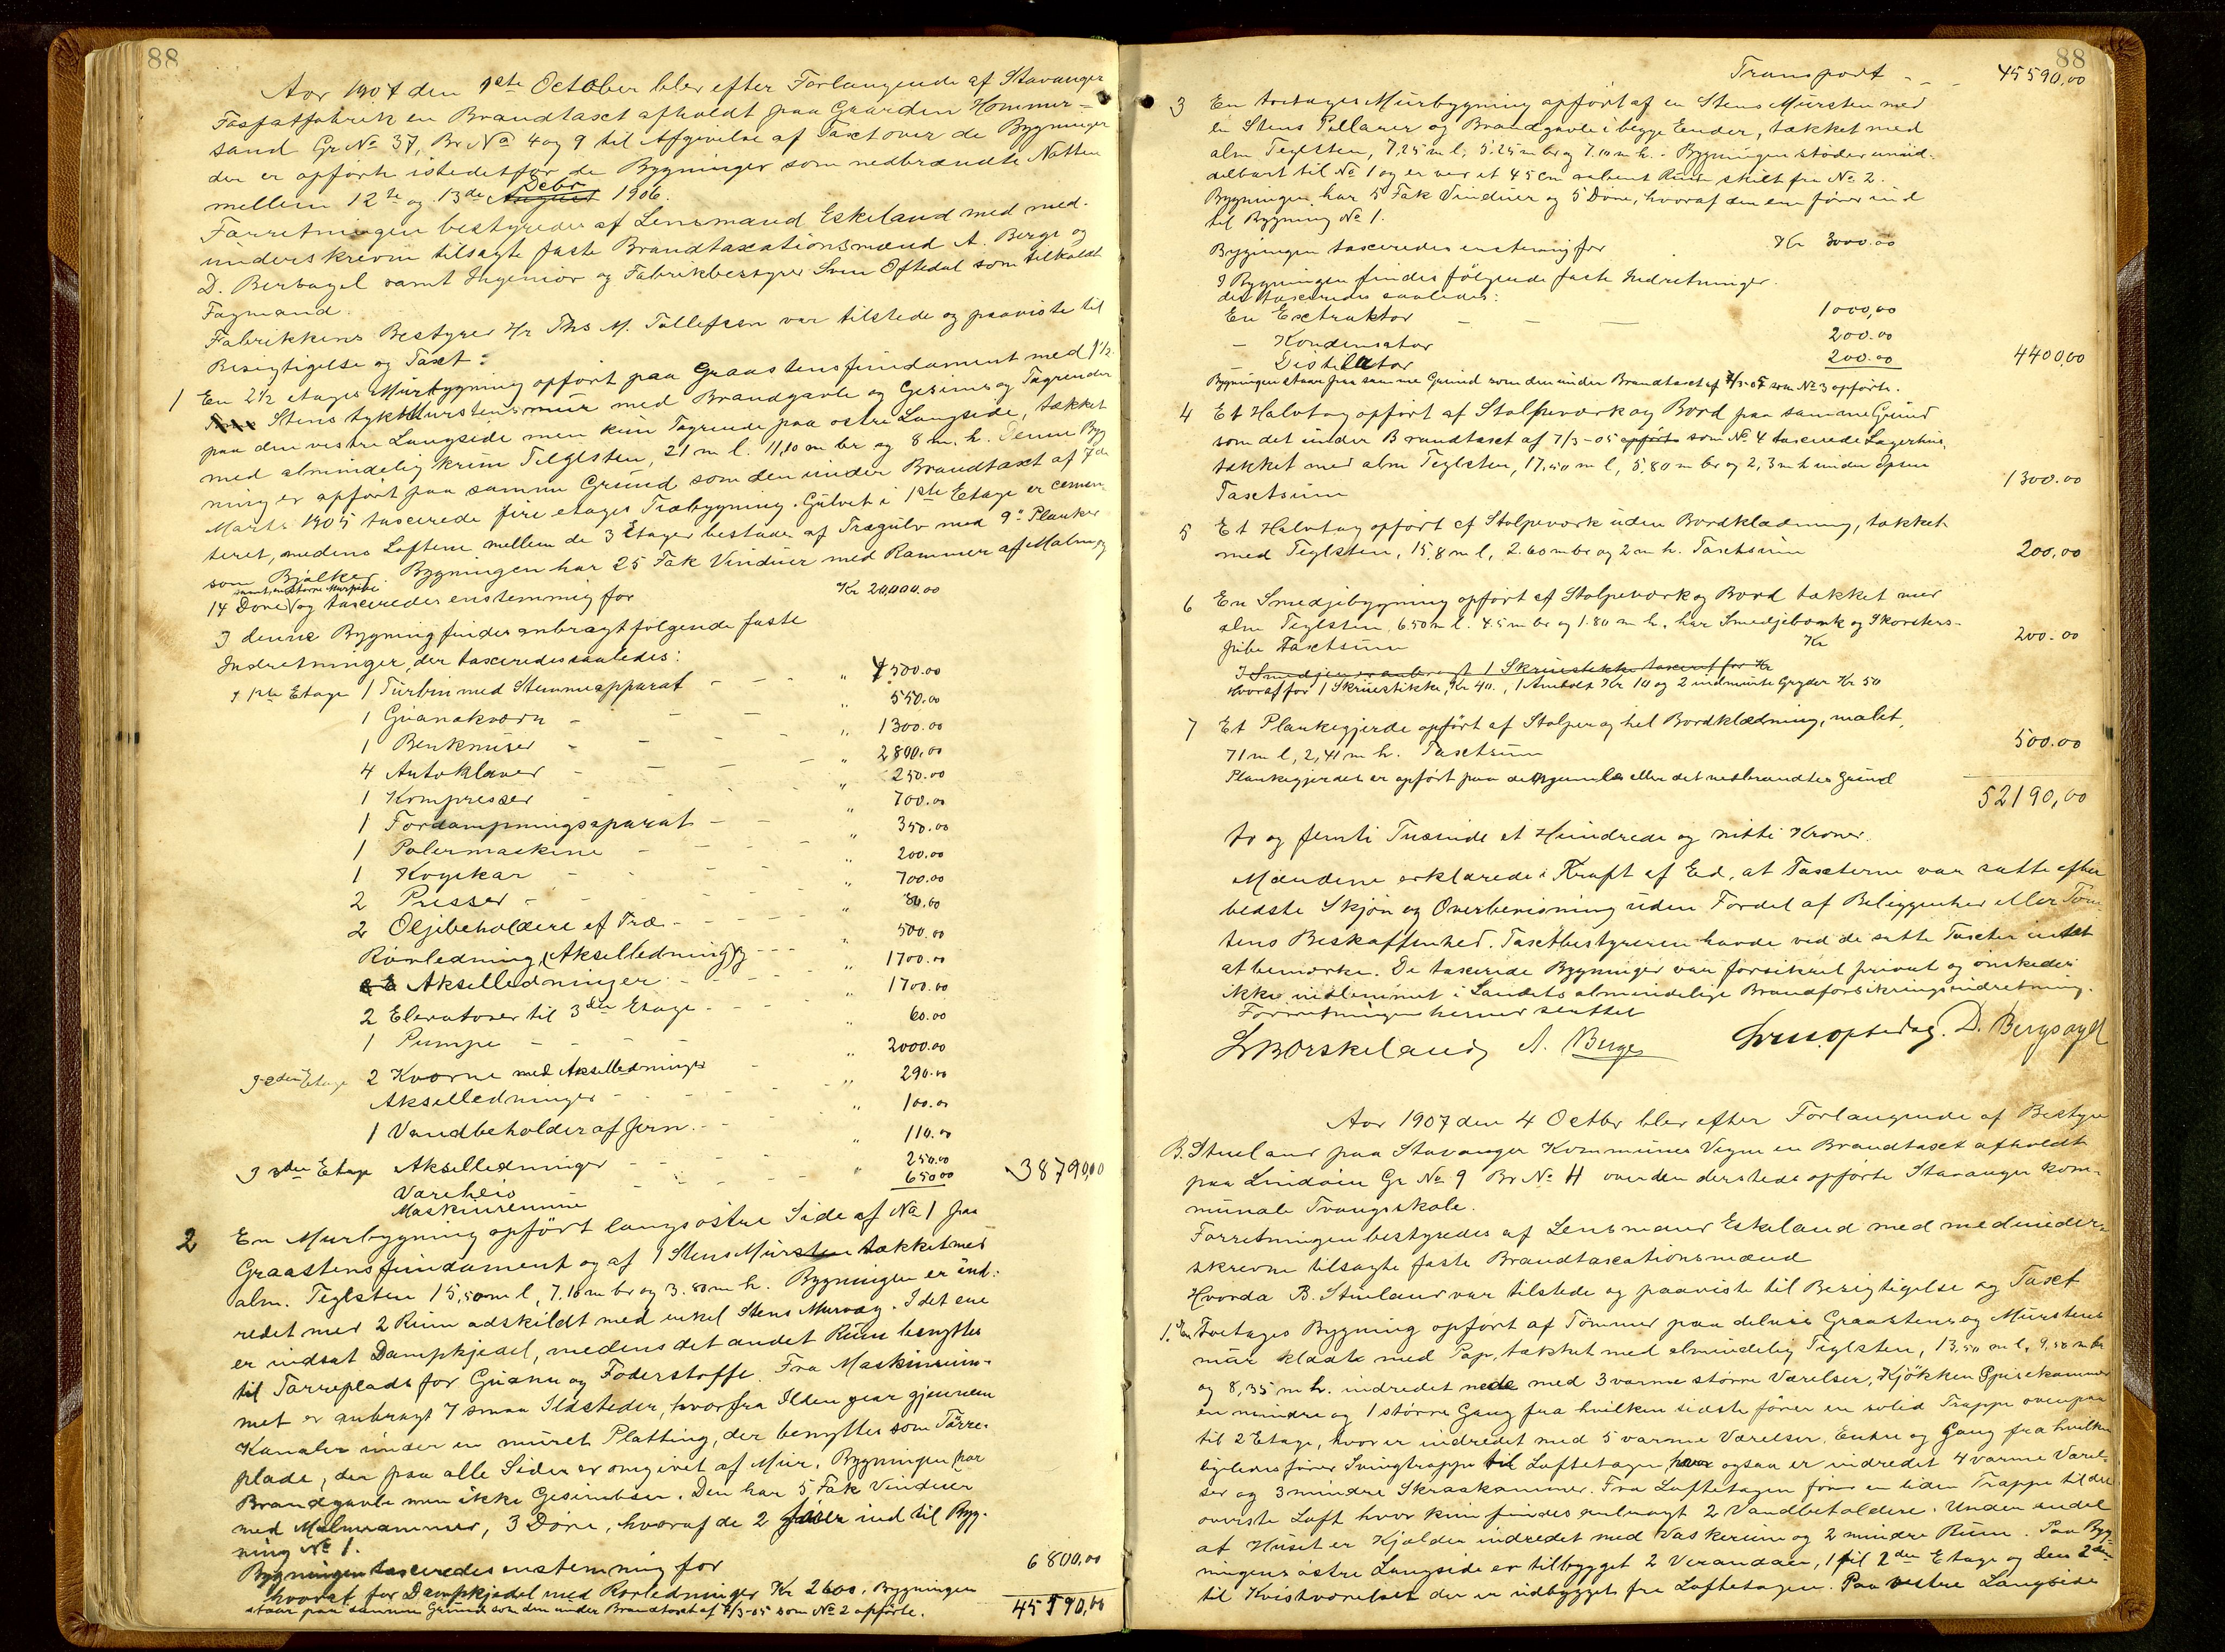 88
Aar 1907 den 1ste October blev efter Forlangende af Stavanger
Fosfatfabrik en Brandtaxt afholdt paa Gaarden Hommer-
sand Gr No 37, Br No 4 og 9 til Afgivelse af Taxt over de Bygninger
der er opførte istedetfor de Bygninger som nedbrændte Natten
mellem 12te og 13de August Debr 1906.
Forretningen bestyredes af Lensmand Eskeland med med-
underskrevne tilsagte faste Brandtaxationsmænd A. Berge og
D. Bersagel samt Ingeniør og Fabrikbestyrer Sven Oftedal som tilkaldt
Fagmand.
Fabrikkens Bestyrer Hr Ths M. Tollefsen var tilstede og paaviste til
Besigtigelse og Taxt:
1 En 2½ etages Murbygning opført paa Graastensfundament med 1½
Stens tyk Murstensmur med Brandgavle og Gesims og Tagrender
paa den vestre Langside men kun Tagrende paa østre Langside, tækket
med almindelig krum Teglsten, 21 m l. 11,10 m br og 8 m. h. Denne Byg
ning er opført paa samme Grund som den under Brandtaxt af 7de
Marts 1905 taxerede fire etages Træbygning. Gulvet i 1ste Etage er cemen-
teret, medens Loftene mellem de 3 Etager bestaar af Trægulv med 9" Planker
som Bjælker. Bygningen har 25 Fak Vinduer med Rammer af Malm og
14 Døre samt en større Murpibe og taxeredes enstemmig for Kr 20,000.00
I denne Bygning findes anbragt følgende faste
Indretninger, der taxeredes saaledes:
I 1ste Etage 1 Turbin med Stemmeapparat - - " 7500.00
1 Guanokværn - - - " 550.00
1 Benknuser - - - " 1300.00
4 Autoklaver - - - " 2800.00
1 Kompressor - - - " 250.00
1 Fordampningsaparat - - " 700.00
1 Polermaskine - - - " 350.00
1 Kogekar - - - " 200.00
2 Presser - - - " 700.00
2 Oljebeholdere af Træ - - - " 80.00
Rørledning (Akselledning) og - - - " 500.00
Akselledninger - - - " 1700.00
2 Elevatorer til 3die Etage - - - " 1700.00
1 Pumpe - - - " 60.00
I 2den Etage 2 Kværne med Akselledninger - " 2000.00
Akselledninger - - - " 290.00
1 Vandbeholder af Jern - - " 100.00
I 3die Etage Akselledninger - - - " 110.00
Vareheis - - - " 250.00
Maskinremme 650.00 38790,00
2 En Murbygning opført langs østre Side af No 1 paa
Graastensfundament og af 1 Stens Mursten tækket med
alm. Teglsten 15,50 m l, 7.10 m br og 3.80 m h. Bygningen er ind-
redet med 2 Rum adskildt med enkel Stens Murvæg. I det ene
er indsat Dampkjedel, medens det andet Rum benyttes
til Tørreplads for Guano og Foderstoffe. Fra Maskinrum-
met er anbragt 7 smaa Ildsteder, hvorfra Ilden gaar gjennem
Kanaler under en muret Platting, der benyttes som Tørre-
plade, der paa alle Sider er omgivet af Mur. Bygningen har
Brandgavle men ikke Gesimbser. Den har 5 Fak Vinduer
med Malmrammer, 3 Døre, hvoraf de 2 fører ind til Byg-
ning No 1.
Bygningen taxeredes enstemmig for 6800,00
hvoraf for Dampkjedel med Rørledninger Kr 2600. Bygningen
staar paa samme Grund som den under Brandtaxt af 7/3-05 som No 2 opførte. 45590,00
88
Transport - - 45590,00
3 En toetages Murbygning opført af en Stens Mursten med
en Stens Pillarer og Brandgavle i begge Ender, tækket med
alm Teglsten, 7,25 m l, 5.25 m br og 7.10 m h. Bygningen støder umid-
delbart til No 1 og er ved et 45 cm aabent Rum skilt fra No 2.
Bygningen har 5 Fak Vinduer og 5 Døre, hvoraf den ene fører ind
til Bygning No 1.
Bygningen taxeredes enstemmig for Kr 3000.00
I Bygningen findes følgende faste Indretninger.
der taxeredes saaledes:
En Extraktor - - - 1000,00
- Kondensator 200.00
- Distilator 200.00 4400,00
Bygningen staar paa samme Grund som den under Brandtaxt af 7/3-05 som No 3 opførte.
4 Et Halvtag opført af Stolpeværk og Bord paa samme Grund
som det under Brandtaxt af 7/3-05 opført som No 4 taxerede Lagerhus,
tækket med alm Teglsten, 17,50 m l, 5,80 m br og 2,3 m h under Øpsen
Taxtsum 1300.00
5 Et Halvtag opført af Stolpeværk uden Bordklædning, tækket
med Teglsten, 15,8 m l, 2.60 m br og 2 m h. Taxtsum 200,00
6 En Smedjebygning opført af Stolpeværk og Bord tækket med
alm Teglsten, 6.50 m l. 4.5 m br og 1.80 m h, har Smedjebænk og Skorstens-
pibe Taxtsum Kr 200.00
I Smedjen er anbragt 1 Skruestikke taxeret for Kr
Hvoraf for 1 Skruestikke, Kr 40., 1 Ambolt Kr 10 og 2 indmurte Gryder Kr 50
7 Et Plankegjerde opført af Stolper og hel Bordklædning, malet,
71 m l, 2,41 m h. Taxtsum 500.00
Plankegjerdet er opført paa det gamle eller det nedbrændtes Grund
52190,00
to og femti Tusinde et Hundrede og nitti Kroner.
Mændene erklærede i Kraft af Ed, at Taxterne var satte efter
bedste Skjøn og Overbevisning uden Fordel af Beliggenhed eller Tom-
tens Beskaffenhed. Taxtbestyreren havde ved de satte Taxter intet
at bemærke. De taxerede Bygninger var forsikret privat og ønskedes
ikke indlemmet i Landets almindelige Brandforsikringsindretning.
Forretningen hermed sluttet
A. Berge D. Bersagel
Aar 1907 den 4 Octbr blev efter Forlangende af Bestyrer
B. Stueland paa Stavanger Kommunes Vegne en Brandtaxt afholdt
paa Lindøen Gr No 9 Br No 4 over den dersteds opførte Stavanger kom-
munale Tvangsskole.
Forretningen bestyredes af Lensmand Eskeland med medunder-
skrevne tilsagte faste Brandtaxationsmænd
Hvorda B. Stueland var tilstede og paaviste til Besigtigelse og Taxt
1. En Toetages Bygning opført af Tømmer paa delvis Graastens og Murstens
mur klædt med Pap, tækket med almindelig Teglsten, 13,50 m l, 9,50 m br
og 8,35 m h. indredet nede med 3 varme større Værelser, Kjøkken Spisekammer
en mindre og 1 større Gang fra hvilken sidste fører en solid Trappe ovenpaa
til 2 Etage, hvor er indredet med 5 varme Værelser, Entre og Gang fra hvilken
ligeledes fører Svingtrappe til Loftetagen hvor ogsaa er indredet 4 varme Værel-
ser og 3 mindre Skraakammer. Fra Loftetagen fører en liden Trappe til det
øverste Loft hvor kun findes anbragt 2 Vandbeholdere. Under endel
af Huset er Kjælder indredet med Vaskerum og 2 mindre Rum. Paa Byg-
ningens østre Langside er tilbygget 2 Verandaer, 1 til 2den Etage og den 2den
til Kvistværelset der er udbygget fra Loftetagen. Paa vestre Langside